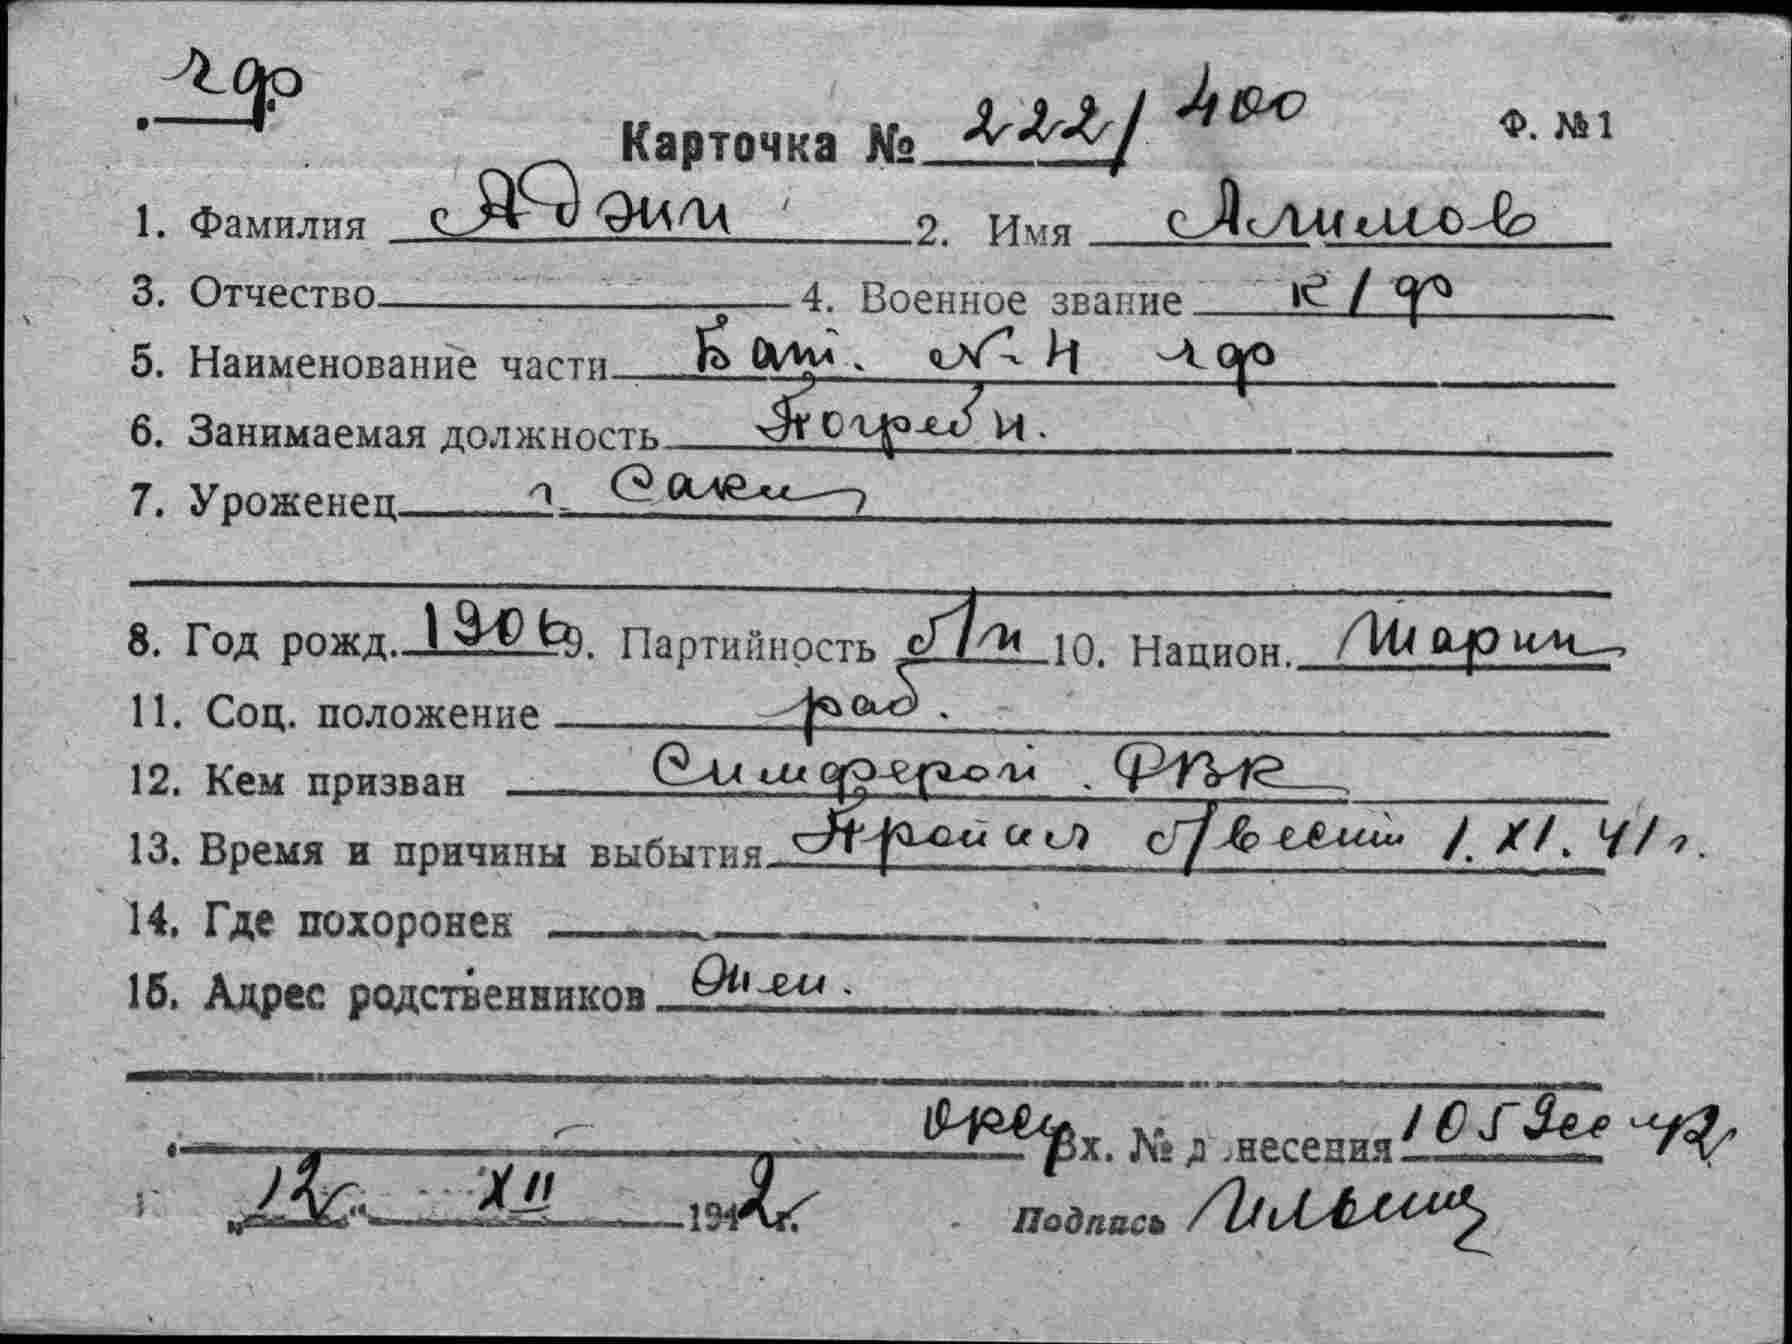 чф
Карточка № 222/400 Ф. №1
1. Фамилия Аджи 2. Имя Алимов
3. Отчество 4. Военное звание к/ф
5. Наименование части Бат. № 4 чф
6. Занимаемая должность
7. Уроженец г. Саки
8. Год рожд. 1906 9. Партийность 10. Национ.
11. Соц. положение раб.
12. Кем призван Симфероп. РВК
13. Время и причины выбытия Пропал 1.XI.41 г.
14. Где похоронен
15. Адрес родственников
Вх. № донесения 105
12 XII 1942 г. Подпись